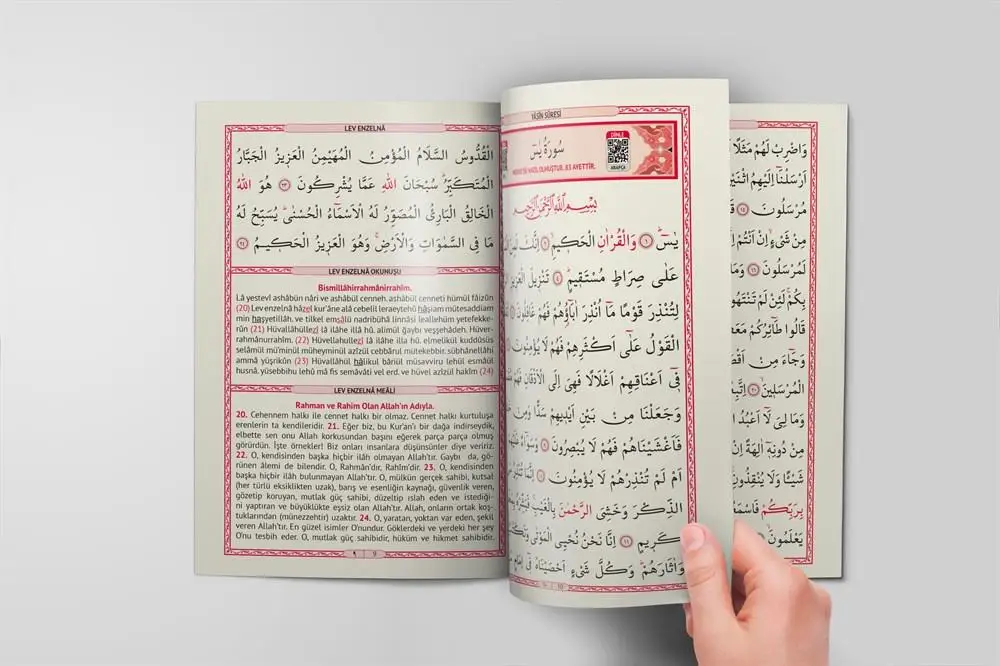 LEV ENZELNÂ
الْقُدُّوسُ السَّلَامُ الْمُؤْمِنُ الْمُهَيْمِنُ الْعَزِيزُ الْجَبَّارُ
الْمُتَكَبِّرُ سُبْحَانَ اللّٰهِ عَمَّا يُشْرِكُونَ ﴿٢٣﴾ هُوَ اللّٰهُ
الْخَالِقُ الْبَارِئُ الْمُصَوِّرُ لَهُ الْاَسْمَٓاءُ الْحُسْنٰى يُسَبِّحُ لَهُ
مَا فِي السَّمٰوَاتِ وَالْاَرْضِ وَهُوَ الْعَزِيزُ الْحَكِيمُ ﴿٢٤﴾
LEV ENZELNÂ OKUNUŞU
Bismillâhirrahmânirrahîm.
Lâ yestevî ashâbün nâri ve ashâbül cenneh. ashâbül cenneti hümül fâizûn
(20) Lev enzelnâ hâzel kur'âne alâ cebelil leraeytehû hâşiam mütesaddiam
min haşyetillâh. ve tilkel emsâlü nadribühâ linnâsi leallehüm yetefekke-
rûn (21) Hüvallâhüllezî lâ ilâhe illâ hû. alimül ğaybi veşşehâdeh. Hüver-
rahmânurrahîm. (22) Hüvellahullezî lâ ilâhe illa hû. elmelikül kuddûsüs
selâmül mü'minül müheyminül azîzül cebbârul mütekebbir. sübhânellâhi
ammâ yüşrikûn (23) Hüvallâhül hâlikul bâriül müsavviru lehül esmâül
husnâ. yüsebbihu lehû mâ fis semâvâti vel erd. ve hüvel azîzül hakîm (24)
LEV ENZELNÂ MEÂLİ
Rahman ve Rahim Olan Allah'ın Adıyla.
20. Cehennem halkı ile cennet halkı bir olmaz. Cennet halkı kurtuluşa
erenlerin ta kendileridir. 21. Eğer biz, bu Kur'an'ı bir dağa indirseydik,
elbette sen onu Allah korkusundan başını eğerek parça parça olmuş
görürdün. İşte örnekler! Biz onları insanlara düşünsünler diye veririz.
22. O, kendisinden başka hiçbir ilâh olmayan Allah'tır. Gaybı da, gö-
rünen âlemi de bilendir. O, Rahmân'dır, Rahîm'dir. 23. O, kendisinden
başka hiçbir ilâh bulunmayan Allah'tır. O, mülkün gerçek sahibi, kutsal
(her türlü eksiklikten uzak), barış ve esenliğin kaynağı, güvenlik veren,
gözetip koruyan, mutlak güç sahibi, düzeltip ıslah eden ve istediği-
ni yaptıran ve büyüklükte eşsiz olan Allah'tır. Allah, onların ortak koş-
tuklarından (münezzehtir) uzaktır. 24. O, yaratan, yoktan var eden, şekil
veren Allah'tır. En güzel isimler O'nundur. Göklerdeki ve yerdeki her şey
O'nu tesbih eder. O, mutlak güç sahibidir, hüküm ve hikmet sahibidir.
٩ 9
YÂSİN SÛRESİ
سُورَةُ يٰسٓ
NAZİL OLMUŞTUR. 83 AYETTİR.
DİNLE
ARAPÇA
بِسْمِ اللّٰهِ الرَّحْمٰنِ الرَّحِيمِ
يٰسٓ ﴿١﴾ وَالْقُرْاٰنِ الْحَكِيمِ ﴿٢﴾ اِنَّكَ لَمِنَ
عَلٰى صِرَاطٍ مُسْتَقِيمٍ ﴿٤﴾ تَنْزِيلَ الْعَزِيزِ
لِتُنْذِرَ قَوْمًا مَٓا اُنْذِرَ اٰبَٓاؤُهُمْ فَهُمْ غَافِلُونَ
الْقَوْلُ عَلٰٓى اَكْثَرِهِمْ فَهُمْ لَا يُؤْمِنُونَ
فِٓي اَعْنَاقِهِمْ اَغْلَالًا فَهِيَ اِلَى الْاَذْقَانِ فَهُمْ
وَجَعَلْنَا مِنْ بَيْنِ اَيْدِيهِمْ سَدًّا وَمِنْ
فَاَغْشَيْنَاهُمْ فَهُمْ لَا يُبْصِرُونَ ﴿٩﴾ وَسَوَٓاءٌ عَلَيْهِمْ
اَمْ لَمْ تُنْذِرْهُمْ لَا يُؤْمِنُونَ ﴿١٠﴾ اِنَّمَا تُنْذِرُ
الذِّكْرَ وَخَشِيَ الرَّحْمٰنَ بِالْغَيْبِ فَبَشِّرْهُ
كَرِيمٍ ﴿١١﴾ اِنَّا نَحْنُ نُحْيِ الْمَوْتٰى وَنَكْتُبُ
وَاٰثَارَهُمْ وَكُلَّ شَيْءٍ اَحْصَيْنَاهُ فِٓي اِمَامٍ
10
وَاضْرِبْ لَهُمْ مَثَلًا
اَرْسَلْنَٓا اِلَيْهِمُ اثْنَيْنِ
مُرْسَلُونَ ﴿١٤﴾
مِنْ شَيْءٍ اِنْ اَنْتُمْ
لَمُرْسَلُونَ ﴿١٦﴾ وَمَا
بِكُمْ لَئِنْ لَمْ تَنْتَهُوا
قَالُوا طَٓائِرُكُمْ مَعَكُمْ
وَجَٓاءَ مِنْ
الْمُرْسَلِينَ ﴿٢٠﴾
وَمَا لِيَ لَٓا اَعْبُدُ
مِنْ دُونِهٖٓ اٰلِهَةً اِنْ
شَيْـًٔا وَلَا يُنْقِذُونِ
بِرَبِّكُمْ فَاسْمَعُونِ
يَعْلَمُونَ